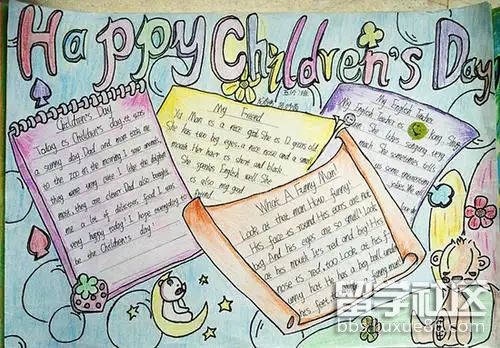 Happy Children's Day
Children's Day
Today is Children's day, it was
a sunny day. Dad and mom took me
to the zoo in the morning. I was
they were very cute. I like the tigers
most, they are clever. Dad also bought
me a lot of delicious food. I was
very happy today! I hope everyday to
be the Children's day.
My Friend
Yu Man is a nice girl. She is 12 years old.
She has two big eyes, a nice nose and a small
mouth. Her hair is short and black.
She speaks English well. She
is also my good
friend!
My English Teacher
My English Teacher is
She likes singing very
much. She sometimes tells
us some interesting
jokes. We all
What A Funny Man!
Look at that man. How funny!
His face is round. His ears are not
big. And his eyes are so small. Look
at his mouth. It's red and big. His
nose is red, too. Look at his
funny hat. He has a big ball under
his foot. funny man!
留学社区
bbs.liuxue86.com